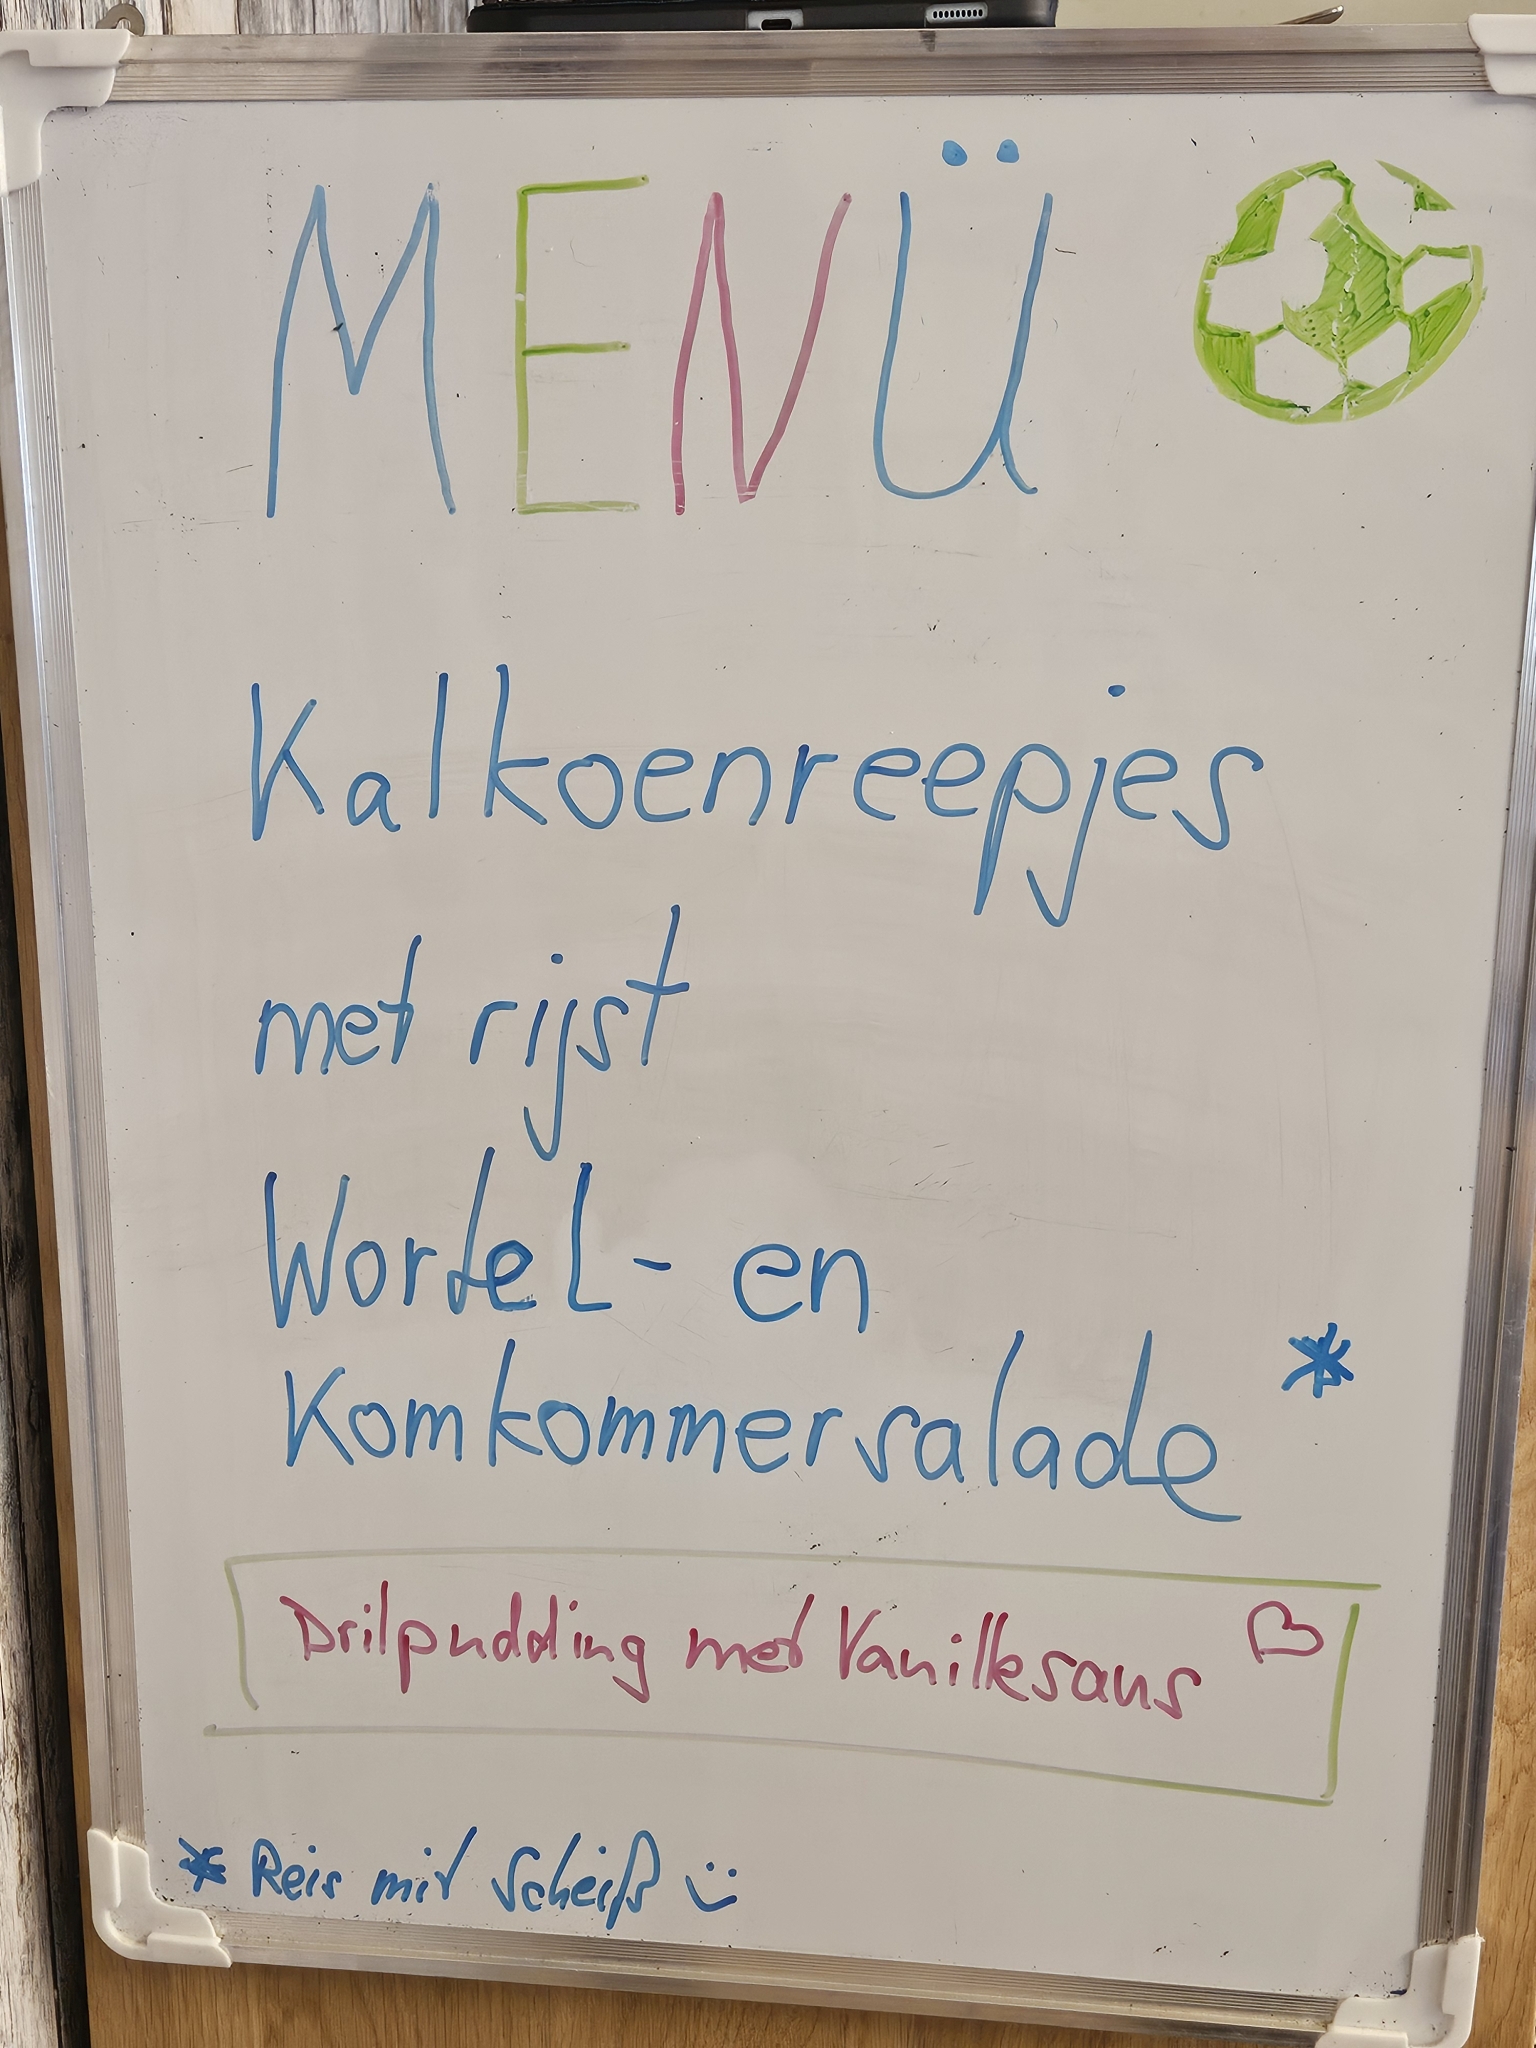 MENÜ
Kalkoenreepjes
met rijst
Wortel- en
Komkommersalade *
Drilpudding met Vanillesaus
* Reis mit Scheiß